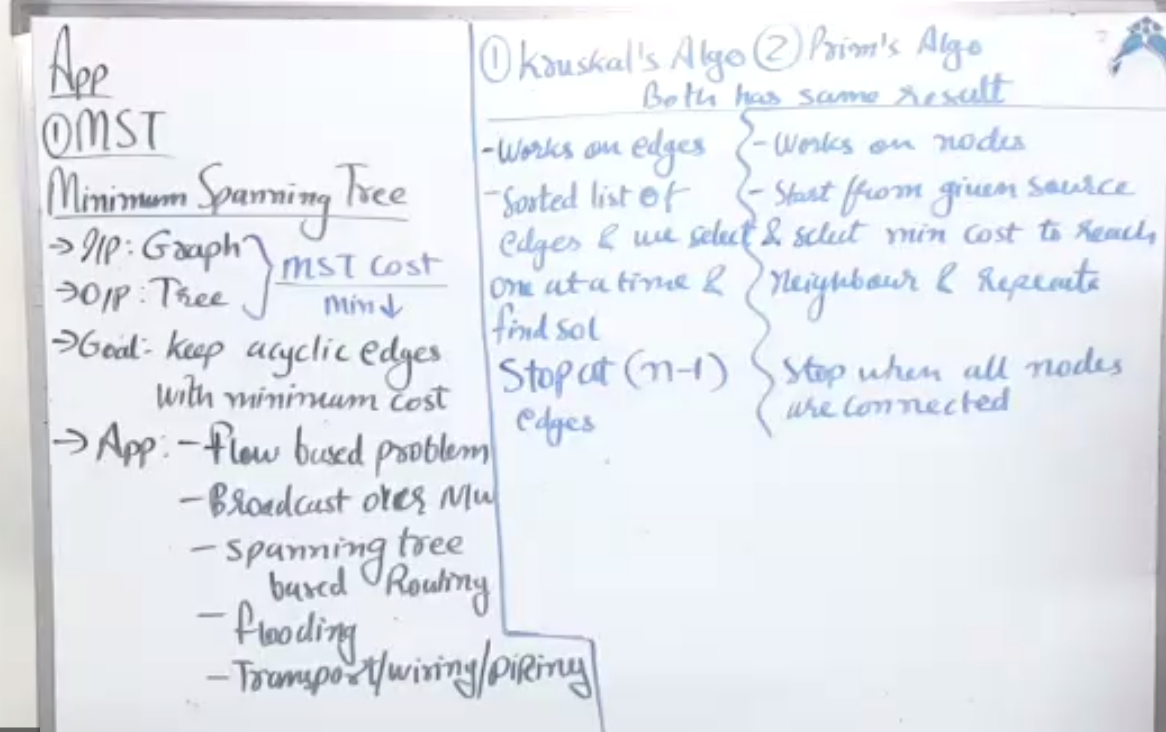 App
①MST
Minimum Spanning Tree
→ I/P: Graph
→ O/P: Tree
MST Cost
Min↓
→ Goal:- keep acyclic edges
with minimum cost
→ App: - flow based problem
- Broadcast over N/w
- spanning tree
based Routing
- flooding
- Transport/wiring/piping
① Kruskal's Algo ② Prim's Algo
Both has same result
- Works on edges
- Sorted list of
edges & we select
one at a time &
find sol
Stop at (n-1)
edges
- Works on nodes
- Start from given source
& select min cost to reach
neighbour & Repeate
Stop when all nodes
are connected